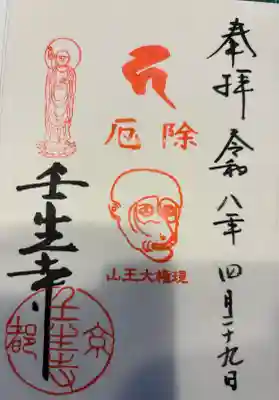 奉拝 令和八年 四月二十九日
厄除
山王大権現
壬生寺
京都
壬生寺